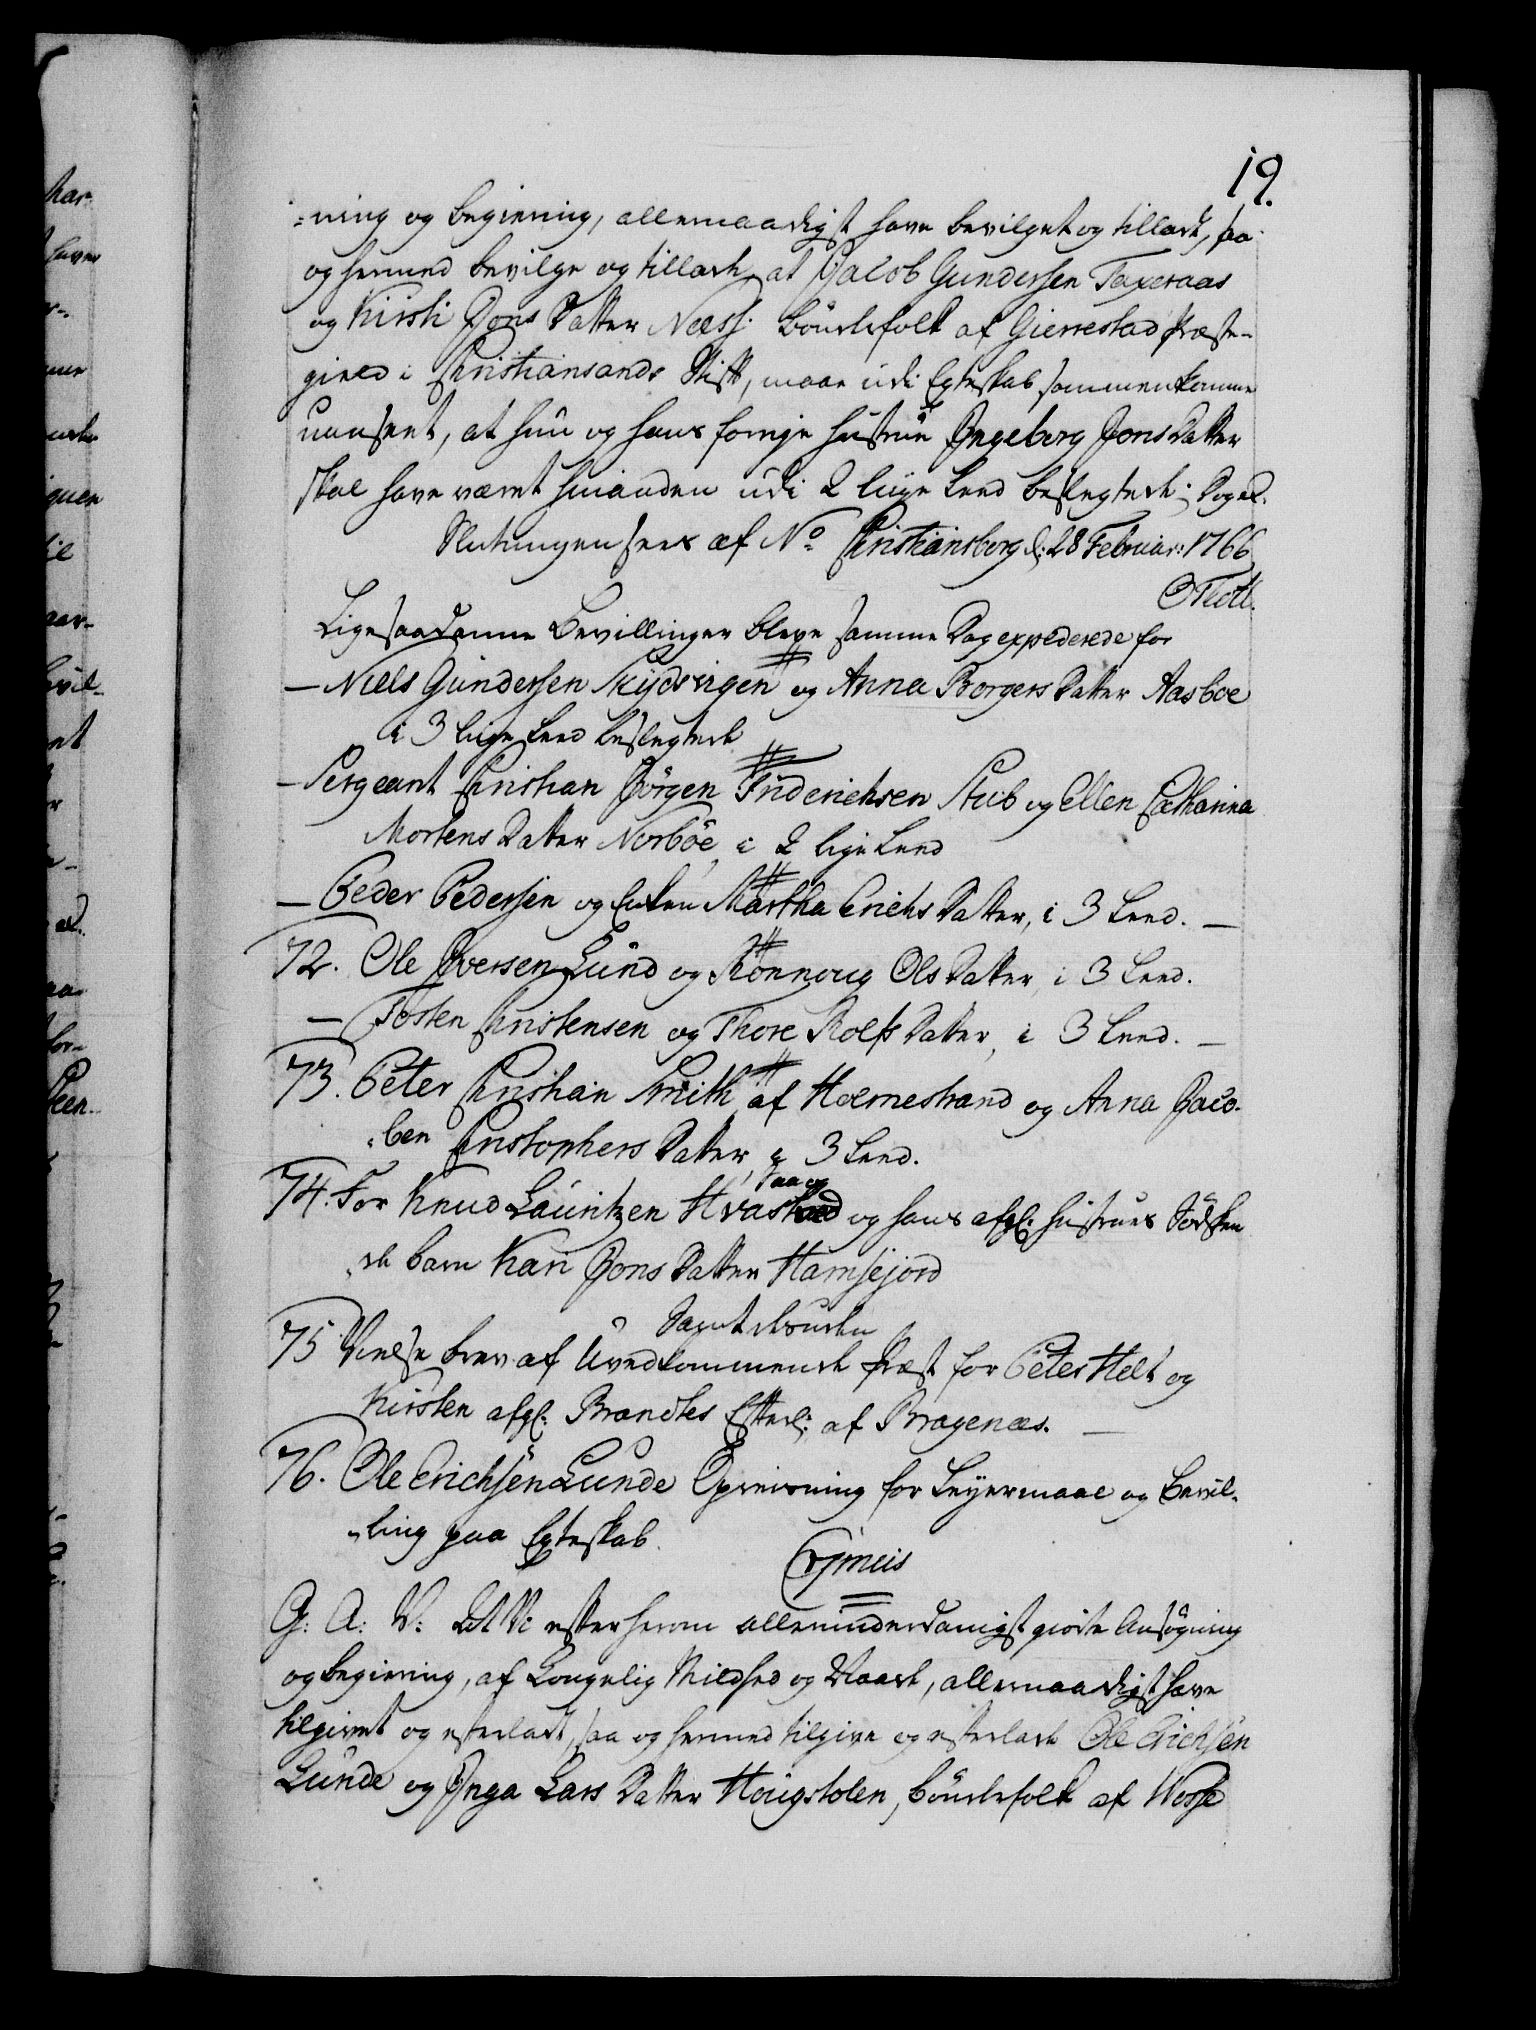 19.
=ning og begiering, allernaadigst have bevilget og tilladt, saa
og hermed bevilge og tillade, at Jacob Gundersen Taxeraas
og Kirsti Jons Datter Næss: bøndefolk af Gierrestad Præste-
gield i Christiansands Stift, maae udi Egteskab sammenkomme
uanseet, at hun og hans forrige hustrue Ingeborg Jons Datter
skal have været hinanden udi 2 liige Leed beslegtede; Dog &c.
Slutningen sees af No Christiansborg d: 28 Februar: 1766
OThott.
Ligesaadanne Bevillinger bleve samme Dag expederede for
— Niels Gundersen Skydsvigen og Anna Borgers Datter Aasboe
i 3 liige Leed beslegtede
— Sergeant Christian Jörgen Friderichsen Stub og Ellen Catharina
Mortens Datter Norböe, i 2 lige Leed
— Peder Pedersen og Enken Martha Erichs Datter, i 3 Leed. —
72. Ole Iversen Lund og Rönnoug Ols Datter, i 3 Leed.
— Tosten Christensen og Thore Rolfs Datter, i 3 Leed. —
73. Peter Christian Smith af Holmestrand og Anna Jaco-
ben Christophers Datter, i 3 Leed.
74. For Knud Lauritzen Hvastad og hans afgl: hustrues Södsken
de barn Kari Jons Datter Hamsejord
75 Vielse brev af Uvedkommende Præst for Peter Helt og
Kirsten afgl: Brandtes Efterl: af Bragenæs. —
76. Ole Erichsen Lunde Opreisning for Leyermaal og Bevil-
ling paa Egteskab.
G: A: V: At Vi efter herom allerunderdanigst giorte Ansögning
og begiering, af Kongelig Mildhed og Naade, allernaadigst have
tilgivet og efterladt, saa og hermed tilgive og efterlade Ole Erichsen
Lunde og Inga Lars Datter Hougstolen, bøndefolk af Wosse